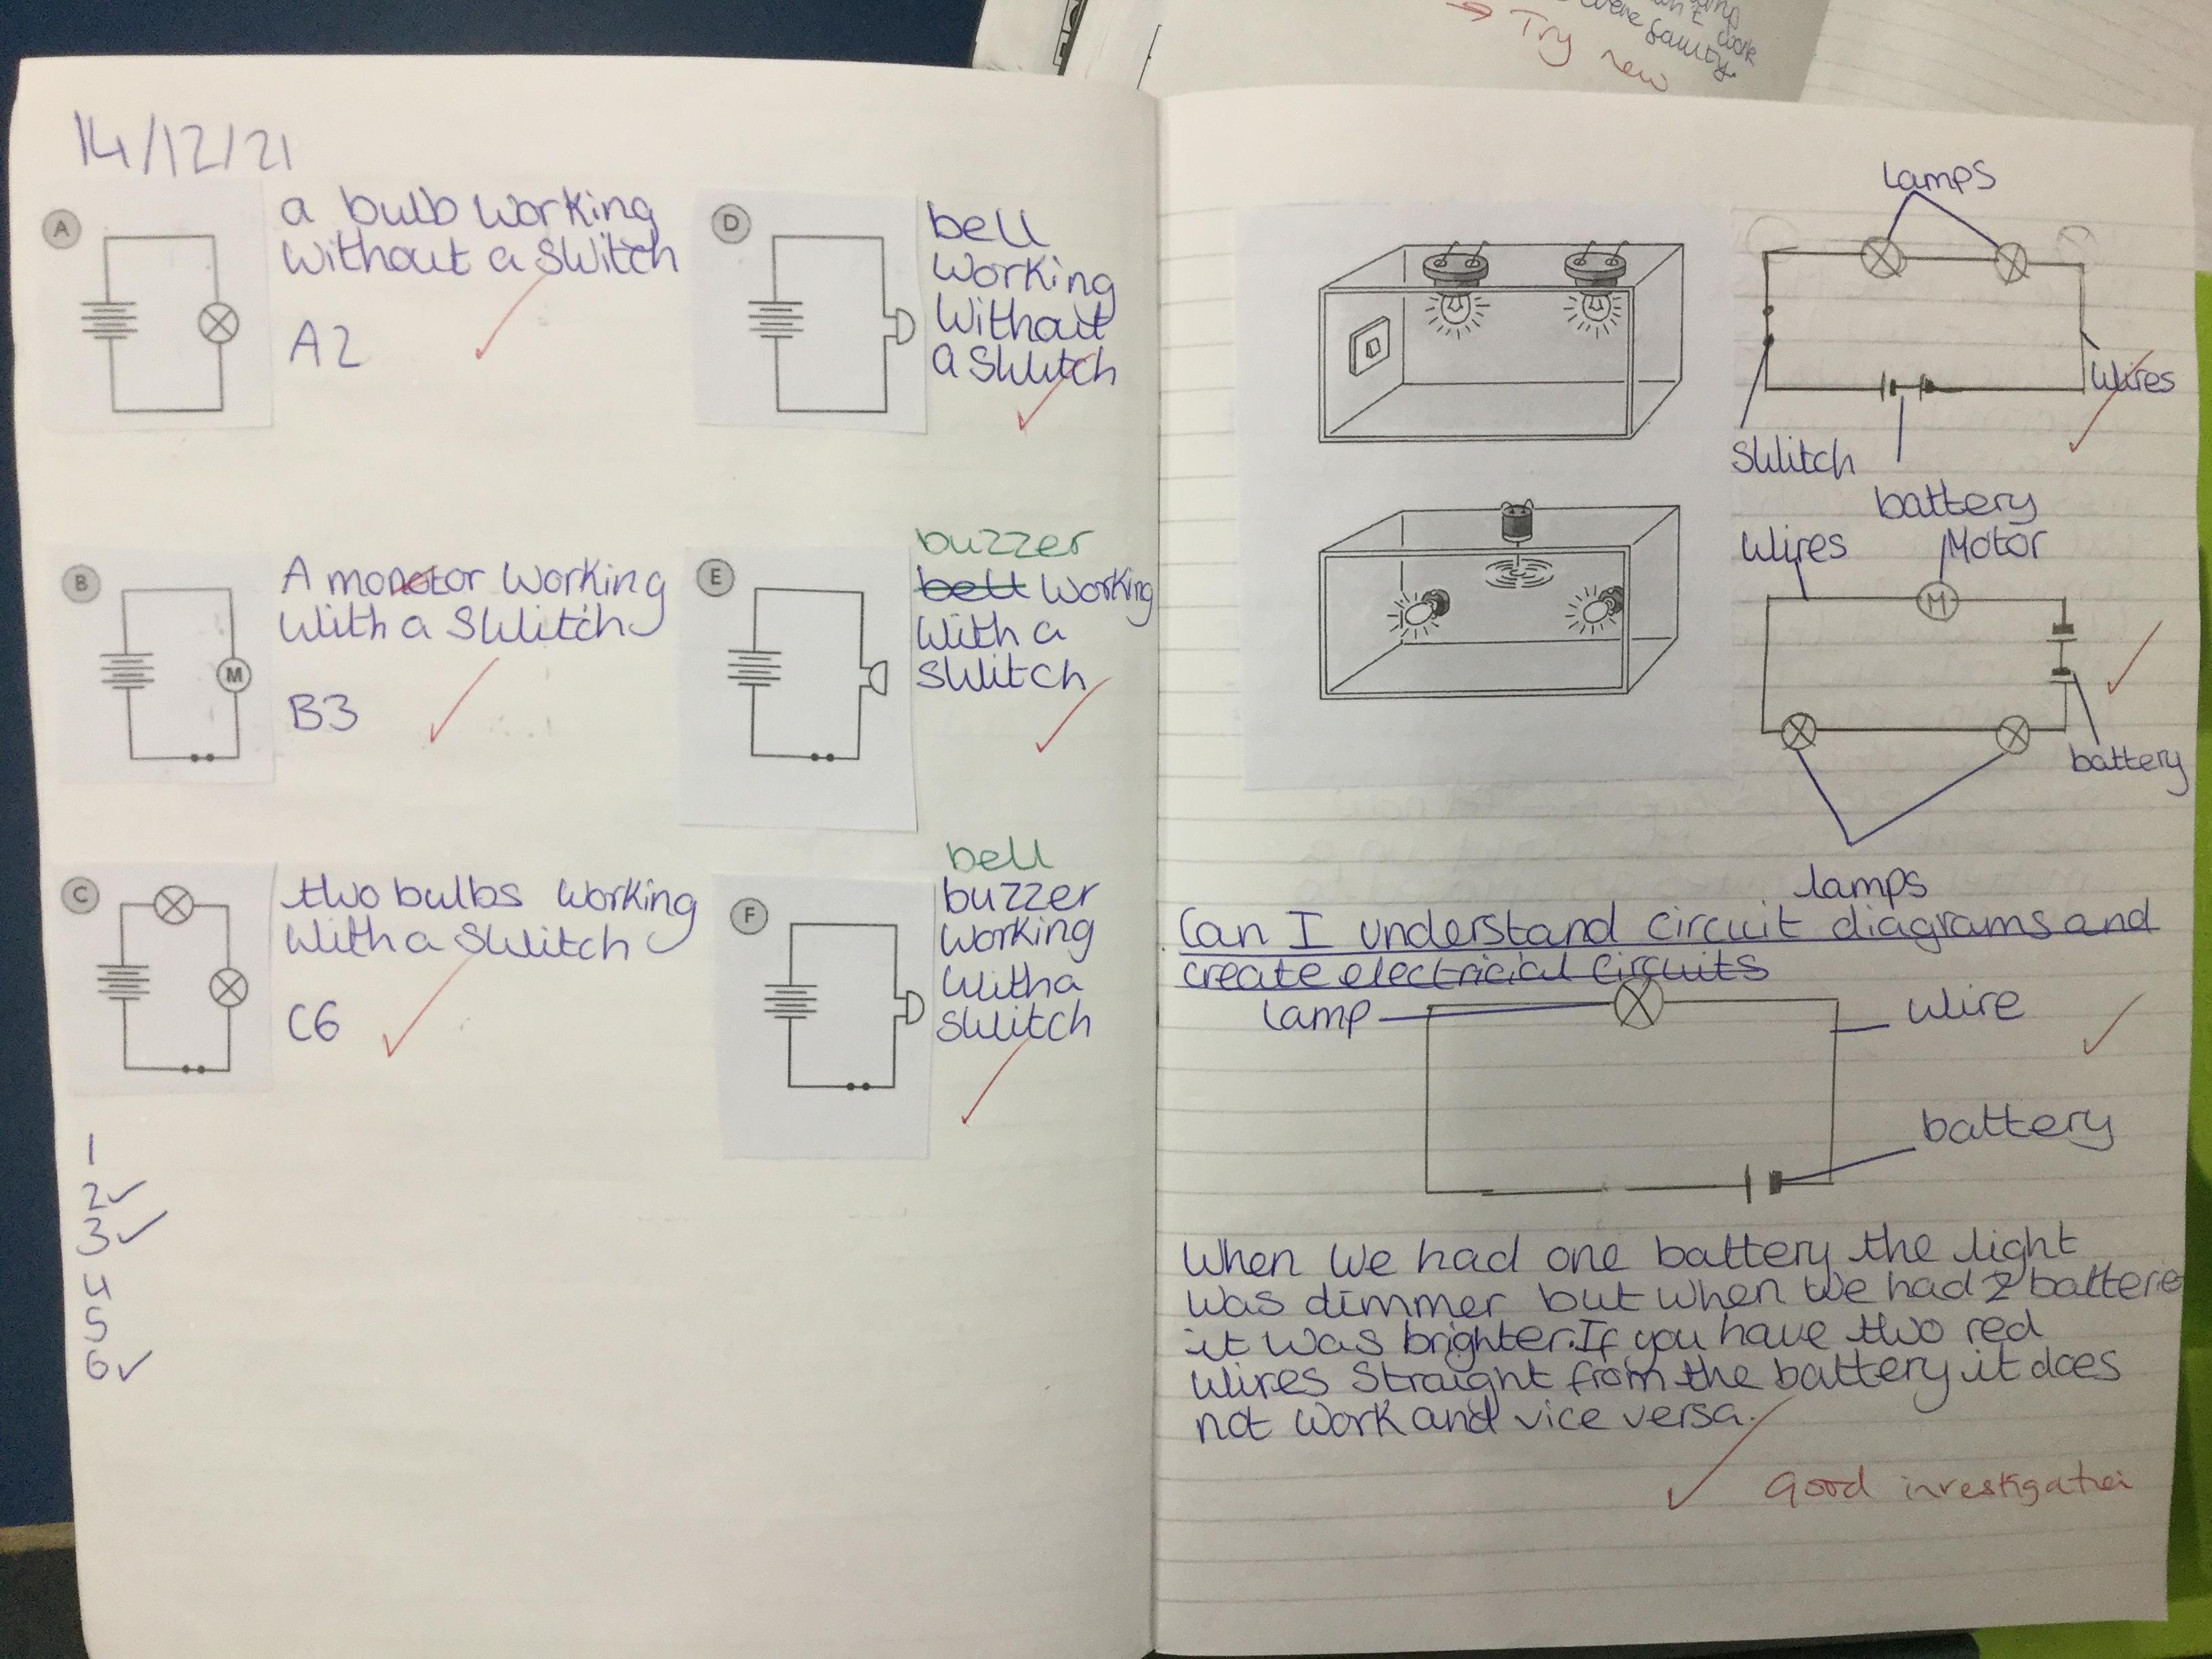 → Try new
work
faulty.
14/12/21
A
a bulb working
without a switch
A2
B
A monotor working
with a switch
B3
M
C
two bulbs working
with a switch
C6
1
2✓
3✓
4
5
6✓
D
bell
working
without
a switch
E
buzzer
bell working
with a
switch
F
bell
buzzer
working
with a
switch
lamps
wires
switch
battery
wires
Motor
M
battery
lamps
Can I understand circuit diagrams and
create electricial circuits
lamp
wire
battery
When we had one battery the light
was dimmer but when we had 2 batterie
it was brighter. If you have two red
wires straight from the battery it does
not work and vice versa.
Good investigation